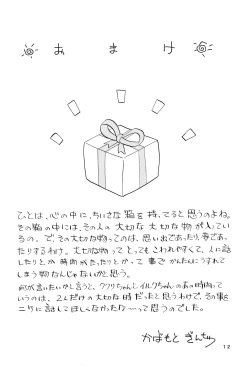 おまけ
ひとは、心の中に、ちいさな箱を持ってると思うのよね。
その箱の中には、その人の大切な大切な物が入ってい
るの。で、その大切な物ってのは、思い出であったり、夢であっ
たりするわけ。大切な物ってとってもこわれやすくて、人に話
したりとか時間がたったりとかって事でかんたんにうすれて
しまう物なんじゃないかと思う。
何が言いたいかと言うと、ククリちゃんとイルクちゃんのあの時間って
いうのは、2人だけの大切な時だったと思うわけで、その事を
ニケに話してほしくなかったな――って思うのでした。
かばもと さんせつ
12